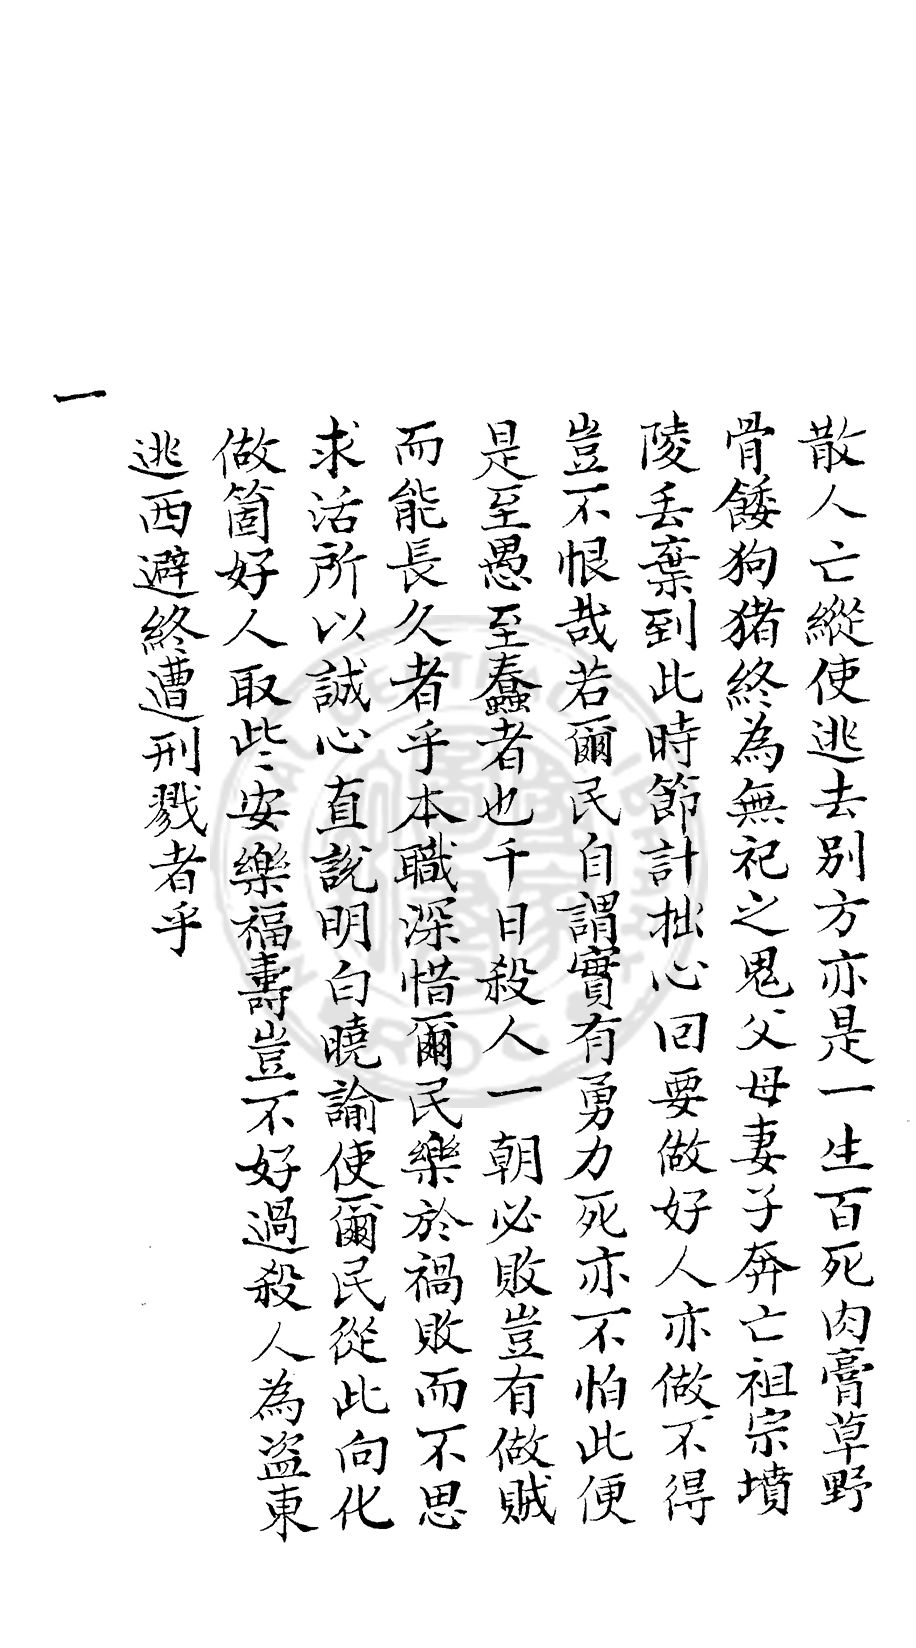 散人亡縱使逃去別方亦是一生百死肉膏草野
骨餧狗猪終為無祀之鬼父母妻子奔亡祖宗墳
陵丟棄到此時節計拙心回要做好人亦做不得
豈不恨哉若爾民自謂實有勇力死亦不怕此便
是至愚至蠢者也千日殺人一朝必敗豈有做賊
而能長久者乎本職深惜爾民樂於禍敗而不思
求活所以誠心直說明白曉諭使爾民從此向化
做箇好人取些安樂福壽豈不好過殺人為盜東
逃西避終遭刑戮者乎
一